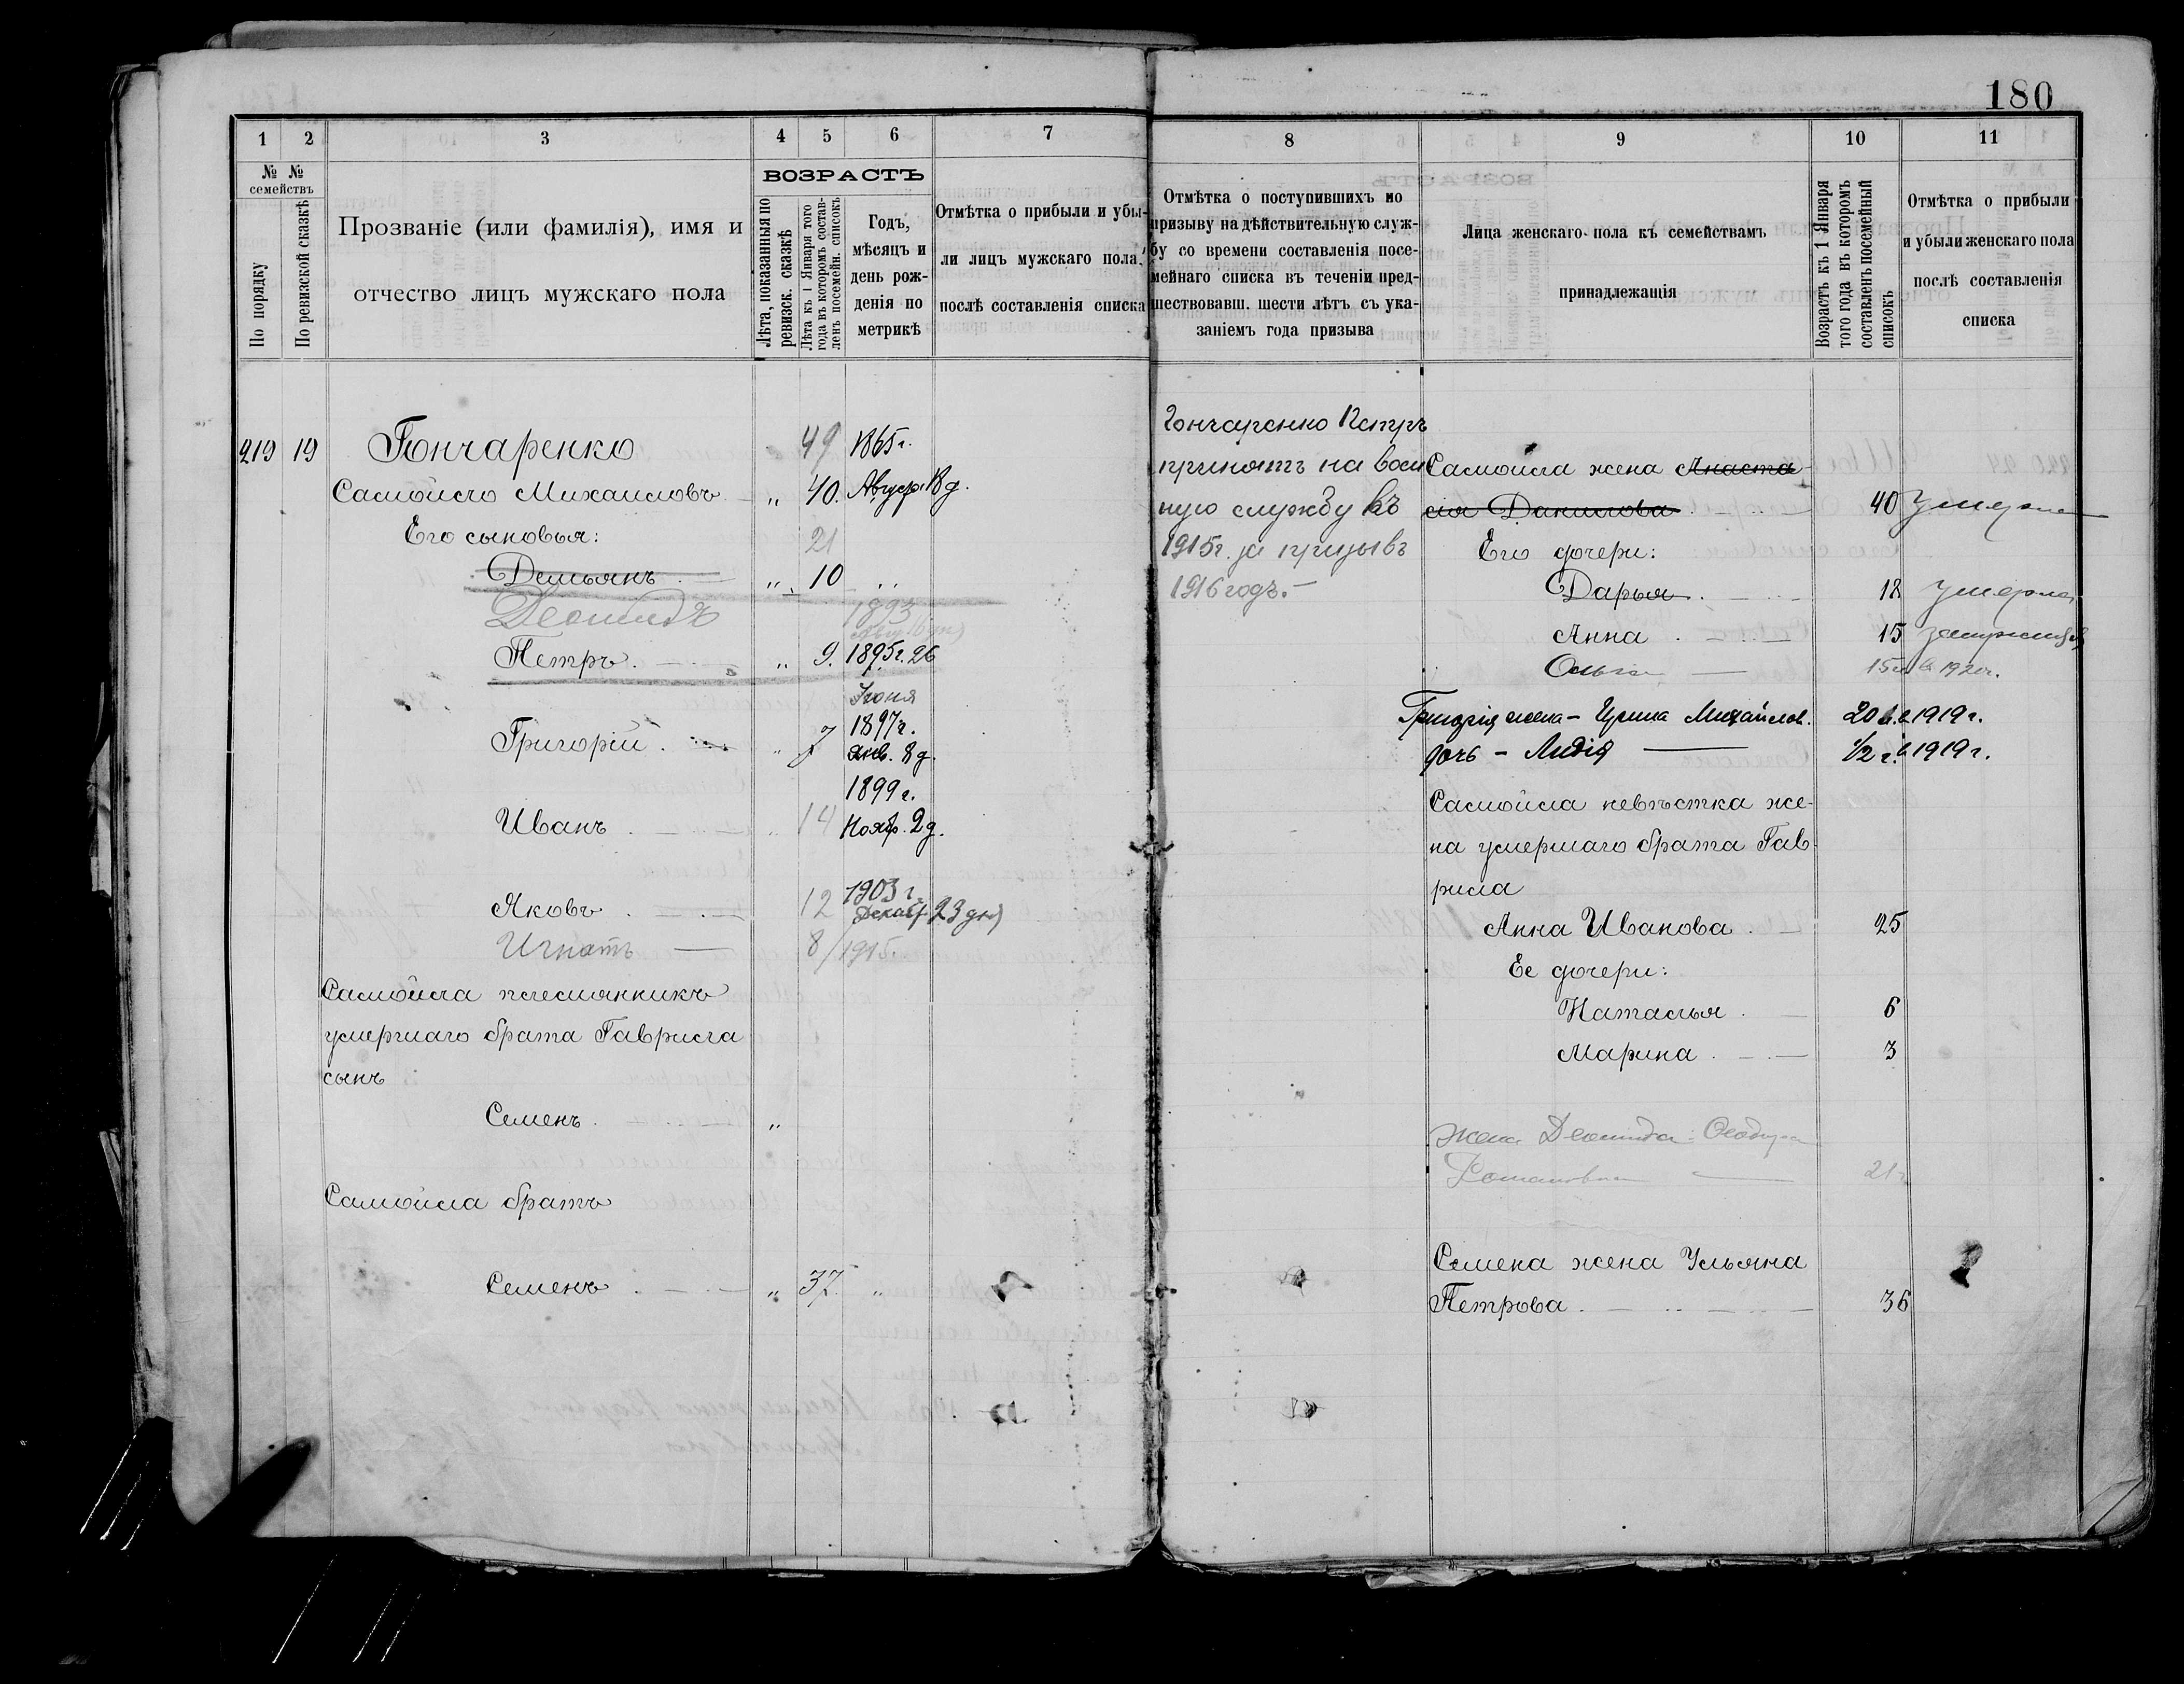 180
1 2 3 4 5 6 7
№ № семействъ
По порядку
По ревизской сказкѣ
Прозваніе (или фамилія), имя и
отчество лицъ мужскаго пола
ВОЗРАСТЪ
Лѣта, показанныя по
ревизск. сказкѣ
Лѣта къ 1 Января того
года въ которомъ состав-
ленъ посемейн. списокъ
Годъ,
мѣсяцъ и
день рож-
денія по
метрикѣ
Отмѣтка о прибыли и убы-
ли лицъ мужскаго пола,
послѣ составленія списка
219 19 Гончаренко 49 1865 г.
Самойло Михаиловъ „ 40. Август. 18 д.
Его сыновья: 21
Демьянъ „ 10
Леонидъ 1893
Петръ. „ 9. 1895 г. 26
Іюня
1897 г.
Григорій. „ 7 янв. 8 д.
1899 г.
Иванъ „ 14 Нояб. 2 д.
1903 г.
Яковъ 12 Декабр 23 дня
Игнатъ 8/1915.
Самойла племянникъ
умершаго брата Гаврила
сынъ
Семенъ. „
Самойла братъ
Семенъ „ 37. „
8 9 10 11
Отмѣтка о поступившихъ по
призыву на дѣйствительную служ-
бу со времени составленія посе-
мейнаго списка въ теченіи пред-
шествовавш. шести лѣтъ съ ука-
заніемъ года призыва
Лица женскаго пола къ семействамъ
принадлежащія
Возрастъ къ 1 Января
того года въ которомъ
составленъ посемейный
списокъ
Отмѣтка о прибыли
и убыли женскаго пола
послѣ составленія
списка
Гончаренко Петръ
принятъ на воен
ную службу въ
1915 г. за призывъ
1916 годъ.
Самойла жена Анаста-
сія Данилова 40 умерла
Его дочери:
Дарья 18 умерла
Анна 15 замужемъ
Ольга 15 л. в 1920 г.
Григорія жена - Ирина Михайлов. 20 л. в 1919 г.
дочь - Лидія 1/2 г. в 1919 г.
Самойла невѣстка же-
на умершаго брата Гав-
рила
Анна Иванова 25
Ее дочери:
Наталья 6
Марина 3
Жена Леонида:
Романовна 21 г
Семена жена Ульяна
Петрова 36